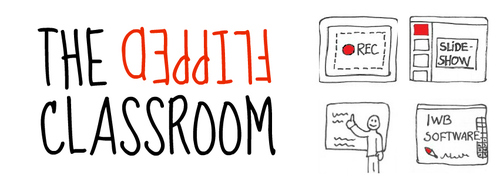 THE FLIPPED
CLASSROOM
REC
SLIDE-
SHOW
IWB
SOFTWARE